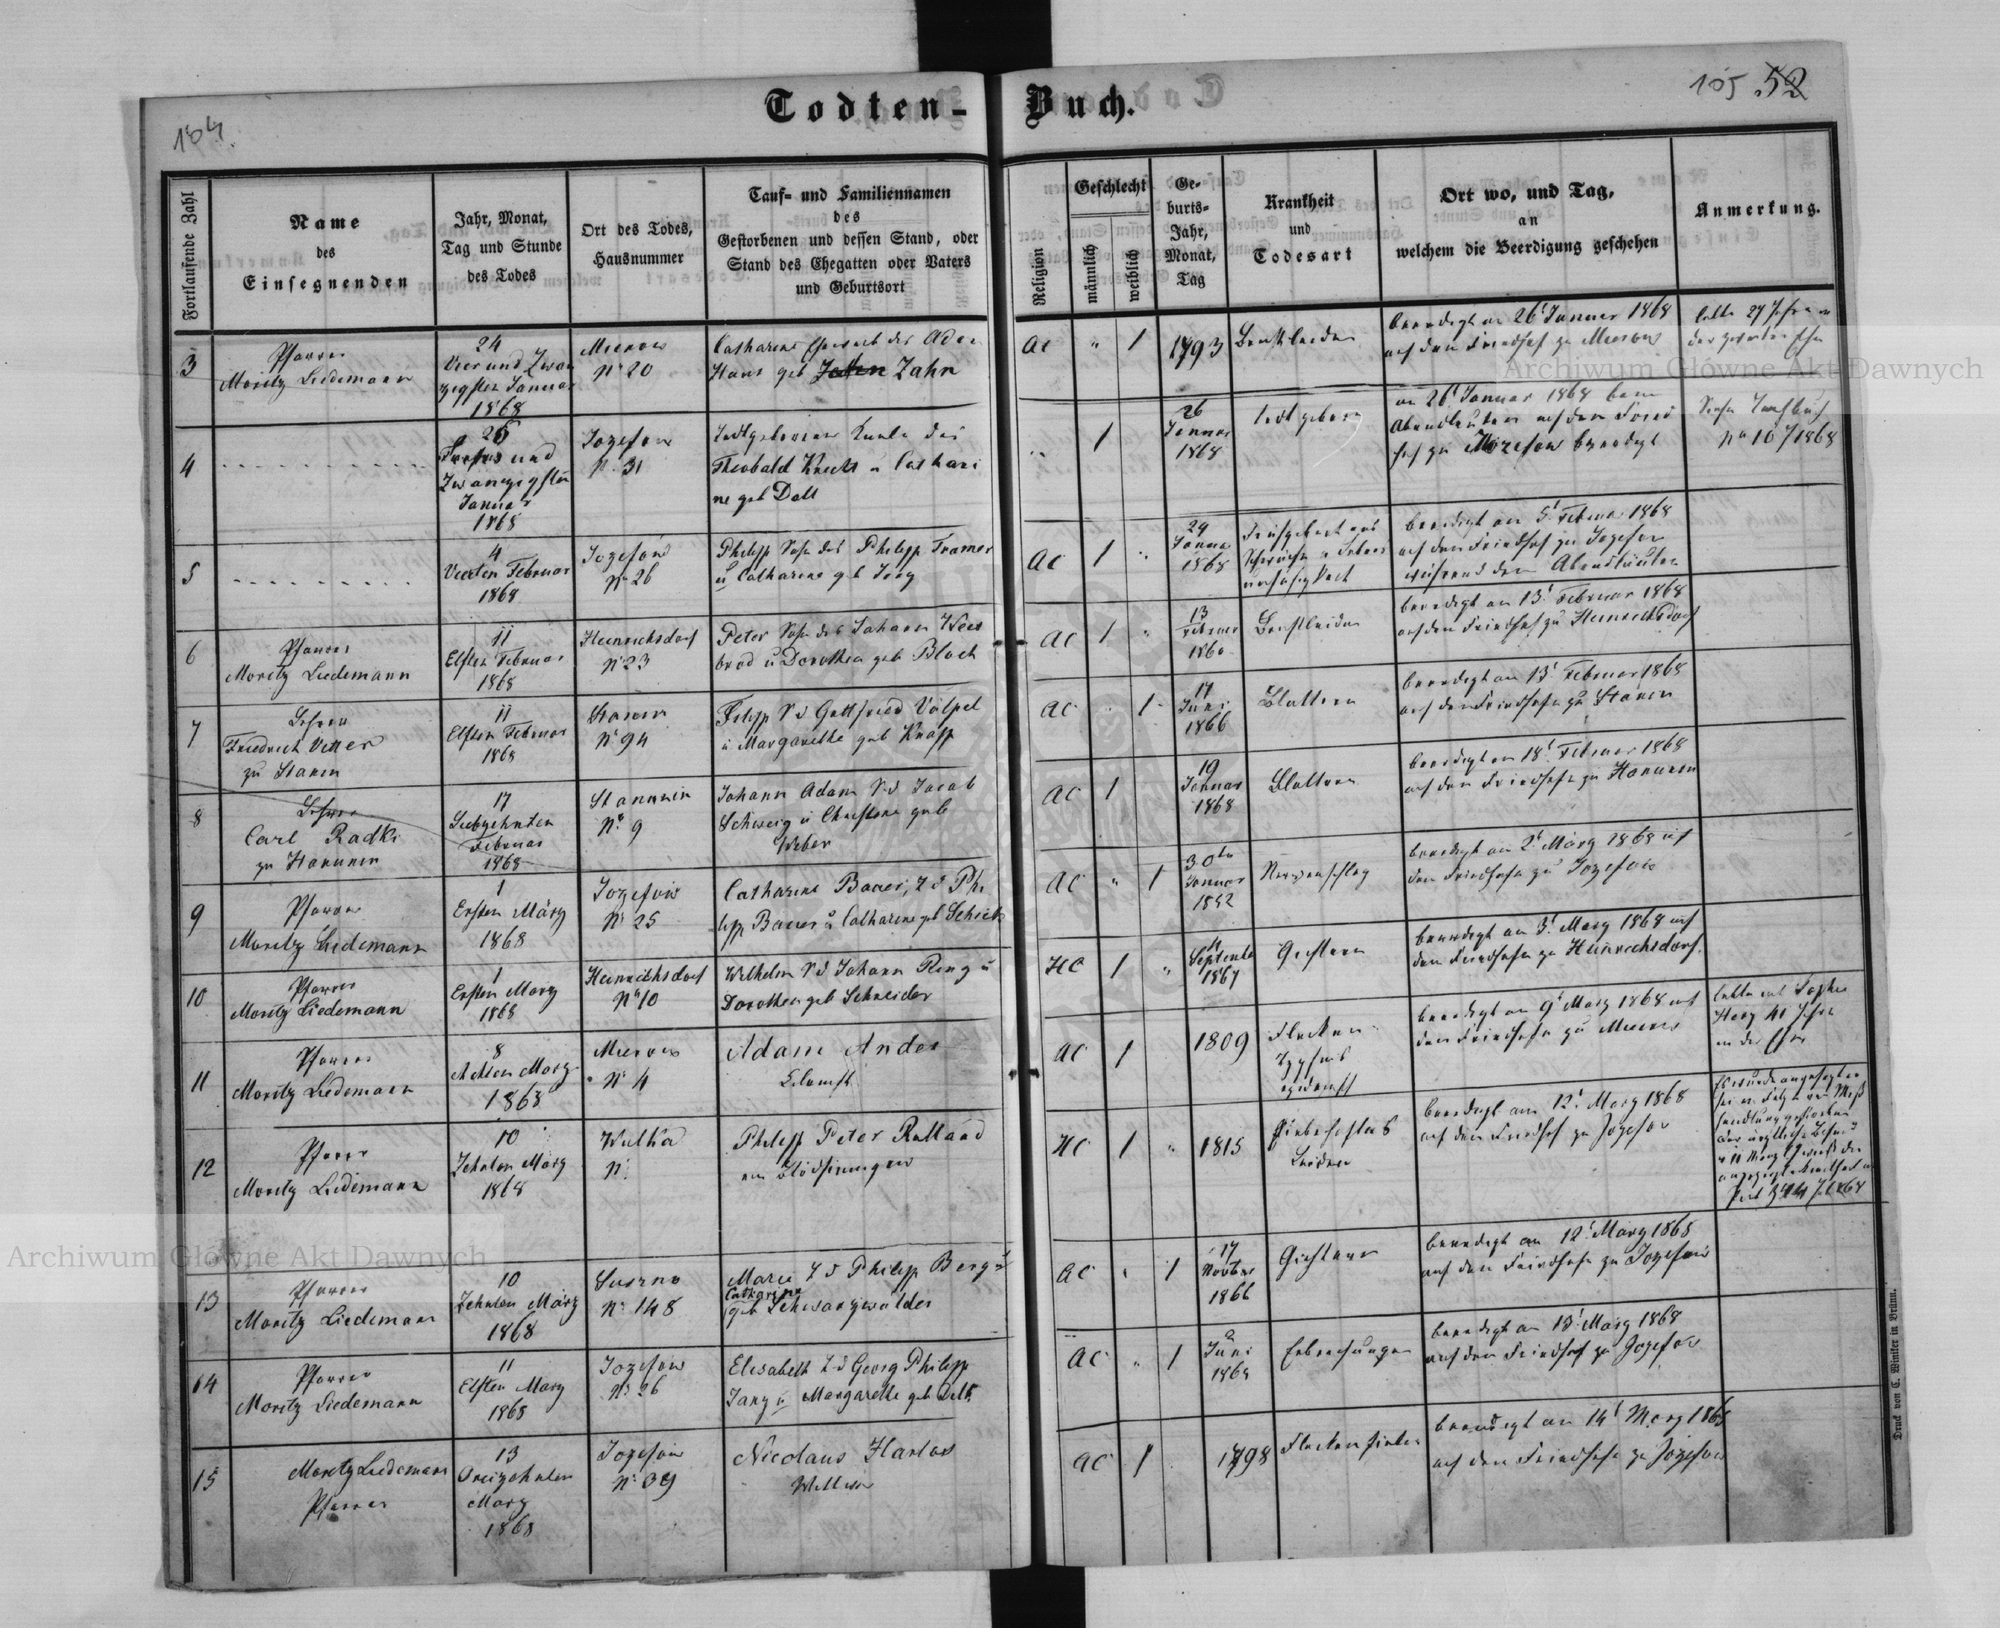 104.
105 52
Todten-Buch.
Fortlaufende Zahl
Name
des
Einsegnenden
Jahr, Monat,
Tag und Stunde
des Todes
Ort des Todes,
Hausnummer
Tauf- und Familiennamen
des
Gestorbenen und dessen Stand, oder
Stand des Ehegatten oder Vaters
und Geburtsort
Religion
Geschlecht
männlich
weiblich
Ge-
burts-
Jahr,
Monat,
Tag
Krankheit
und
Todesart
Ort wo, und Tag,
an
welchem die Beerdigung geschehen
Anmerkung.
3
Pfarrer
Moritz Liedemann
24
Vier und Zwan
zigsten Januar
1868
Mierow
No 20
Catharine Eheweib des Adam
Haus geb Zahn
AC
"
1
1793
Brustleiden
beerdigt am 26t Januar 1868
auf dem Friedhof zu Mierow
lebte 27 Jahre in
der zweiten Ehe
4
26
und
Zwanzigsten
Januar
1868
Jozefow
No 31
Todtgeborener Knabe des
Theobald u Cathari
ne geb Doll
1
26
Januar
1868
todtgeboren
am 26t Januar 1868 beim
Abendläuten auf dem Fried
hof zu Jozefow beerdigt
Siehe Taufbuch
No 16 1868
5
4
Vierten Februar
1868
Jozefow
No 26
Philipp Sohn des Philipp Framer
u Catharine geb Jerg
AC
1
"
29
Januar
1868
beerdigt am 5t Februar 1868
auf dem Friedhof zu Jozefow
während dem Abendläuten
6
Pfarrer
Moritz Liedemann
11
Elften Februar
1868
Heinrichsdorf
No 23
Peter Sohn des Johann Weis
brod u Dorothea geb Bloch
AC
1
"
13
Februar
Brustleiden
beerdigt am 13t Februar 1868
auf dem Friedhof zu Heinrichsdorf
7
Lehrer
Friedrich Vetter
zu Stanin
11
Elften Februar
1868
Stanin
No 94
Filipp S d Gottfried Völpel
u Margarethe geb Knapp
AC
1
17
Juni
1866
Blattern
beerdigt am 13t Februar 1868
auf dem Friedhofe zu Stanin
8
Lehrer
Carl Radki
zu Hanunin
17
Siebzehnten
Februar
1868
No 9
Johann Adam S d Jacob
Schweig u Christine geb
Weber
AC
1
19
Januar
1868
Blattern
beerdigt am 18t Februar 1868
auf dem Friedhofe zu Hanunin
9
Pfarrer
Moritz Liedemann
1
Ersten März
1868
Jozefow
No 25
Catharine Bauer, T d Phi
lipp Bauer u Catharine geb Schick
AC
"
1
30ten
Januar
1852
Nervenschlag
beerdigt am 2t März 1868 auf
dem Friedhofe zu Jozefow
10
Pfarrer
Moritz Liedemann
1
Ersten März
1868
Heinrichsdorf
No 10
Wilhelm S d Johann Ring u
Dorothea geb Schneider
HC
1
"
Septemb
1867
Gichtern
beerdigt am 3t März 1868 auf
dem Friedhofe zu Heinrichsdorf.
11
Pfarrer
Moritz Liedemann
8
Achten März
1868
Mierow
No 4
Adam Andes
AC
1
1809
Flecken
Typhus
beerdigt am 9t März 1868 auf
dem Friedhofe zu Mierow
lebte mit Sophie
Herz 41 Jahre
in der Ehe
12
Pfarrer
Moritz Liedemann
10
Zehnten März
1868
Wulka
No
Philipp Peter Rulland
HC
1
"
1815
Fieberhaftes
Leiden
beerdigt am 12t März 1868
auf dem Friedhof zu Jozefow
13
Pfarrer
Moritz Liedemann
10
Zehnten März
1868
No 148
Marie T d Philipp Berg u
Catharine
geb Schwarzwalder
AC
1
17
Novber
1866
Gichtern
beerdigt am 12t März 1868
auf dem Friedhofe zu Jozefow
14
Pfarrer
Moritz Liedemann
11
Elften März
1868
Jozefow
No 26
Elisabeth T d Georg Philipp
Jang u Margarethe geb Dell
AC
"
1
Juni
beerdigt am 13t März 1868
auf dem Friedhof zu Jozefow
15
Moritz Liedemann
Pfarrer
13
Dreizehnten
März
1868
Jozefow
No 39
Nicolaus Hartos
Wittwer
AC
1
1798
Fleckenfieber
beerdigt am 14t März 1868
auf dem Friedhofe zu Jozefow
Druck von C. Winiker in Brünn.
Archiwum Główne Akt Dawnych
Archiwum Główne Akt Dawnych